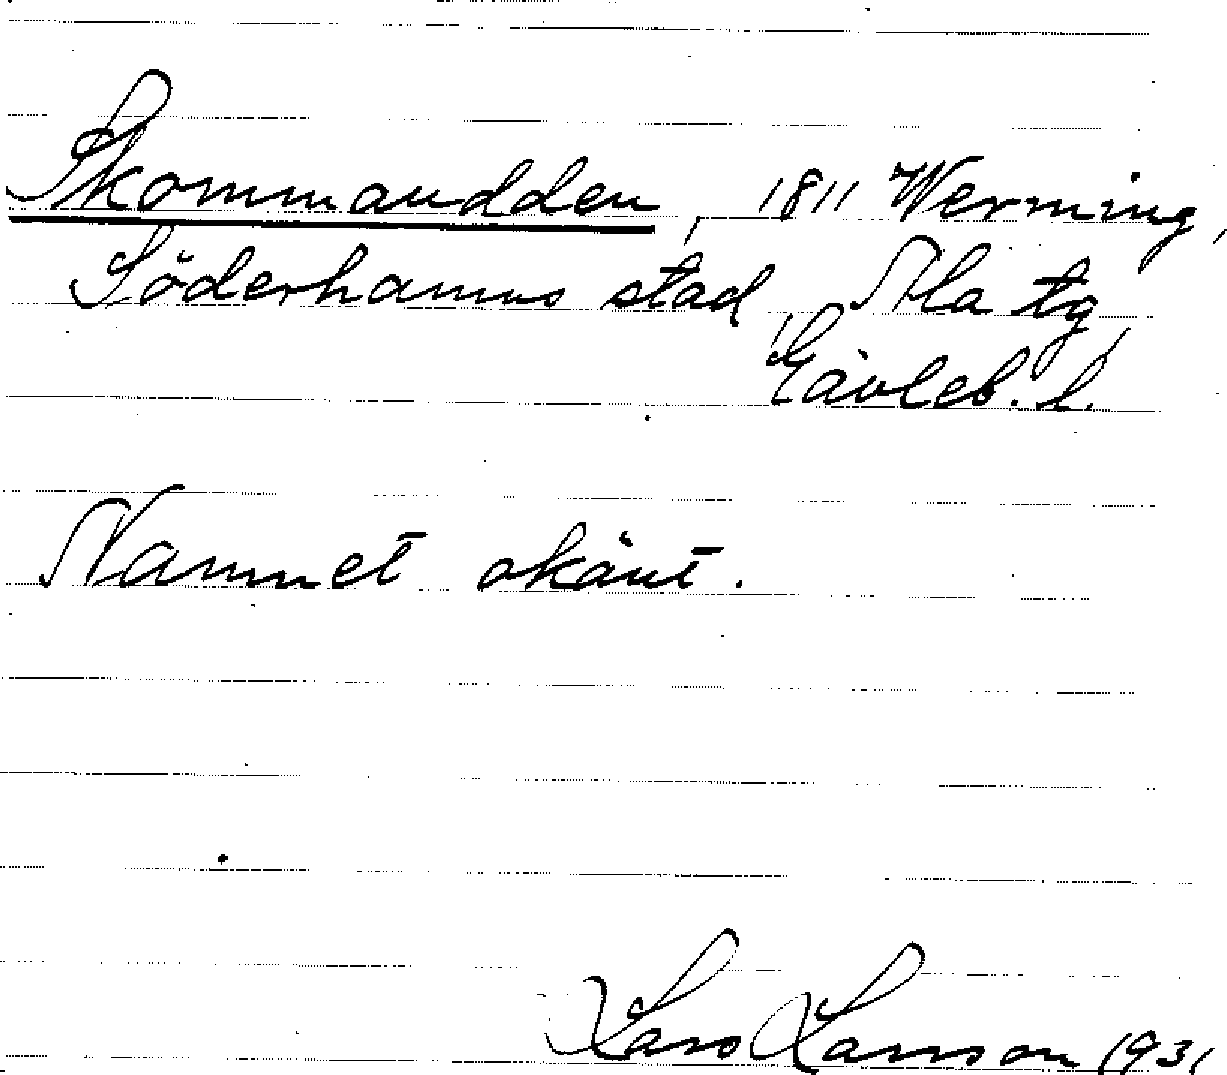 Skommaudden, 1811 Werming,
Söderhamns stad, Ala tg,
Gävleb. l.
Namnet okänt.
Lars Larsson 1931